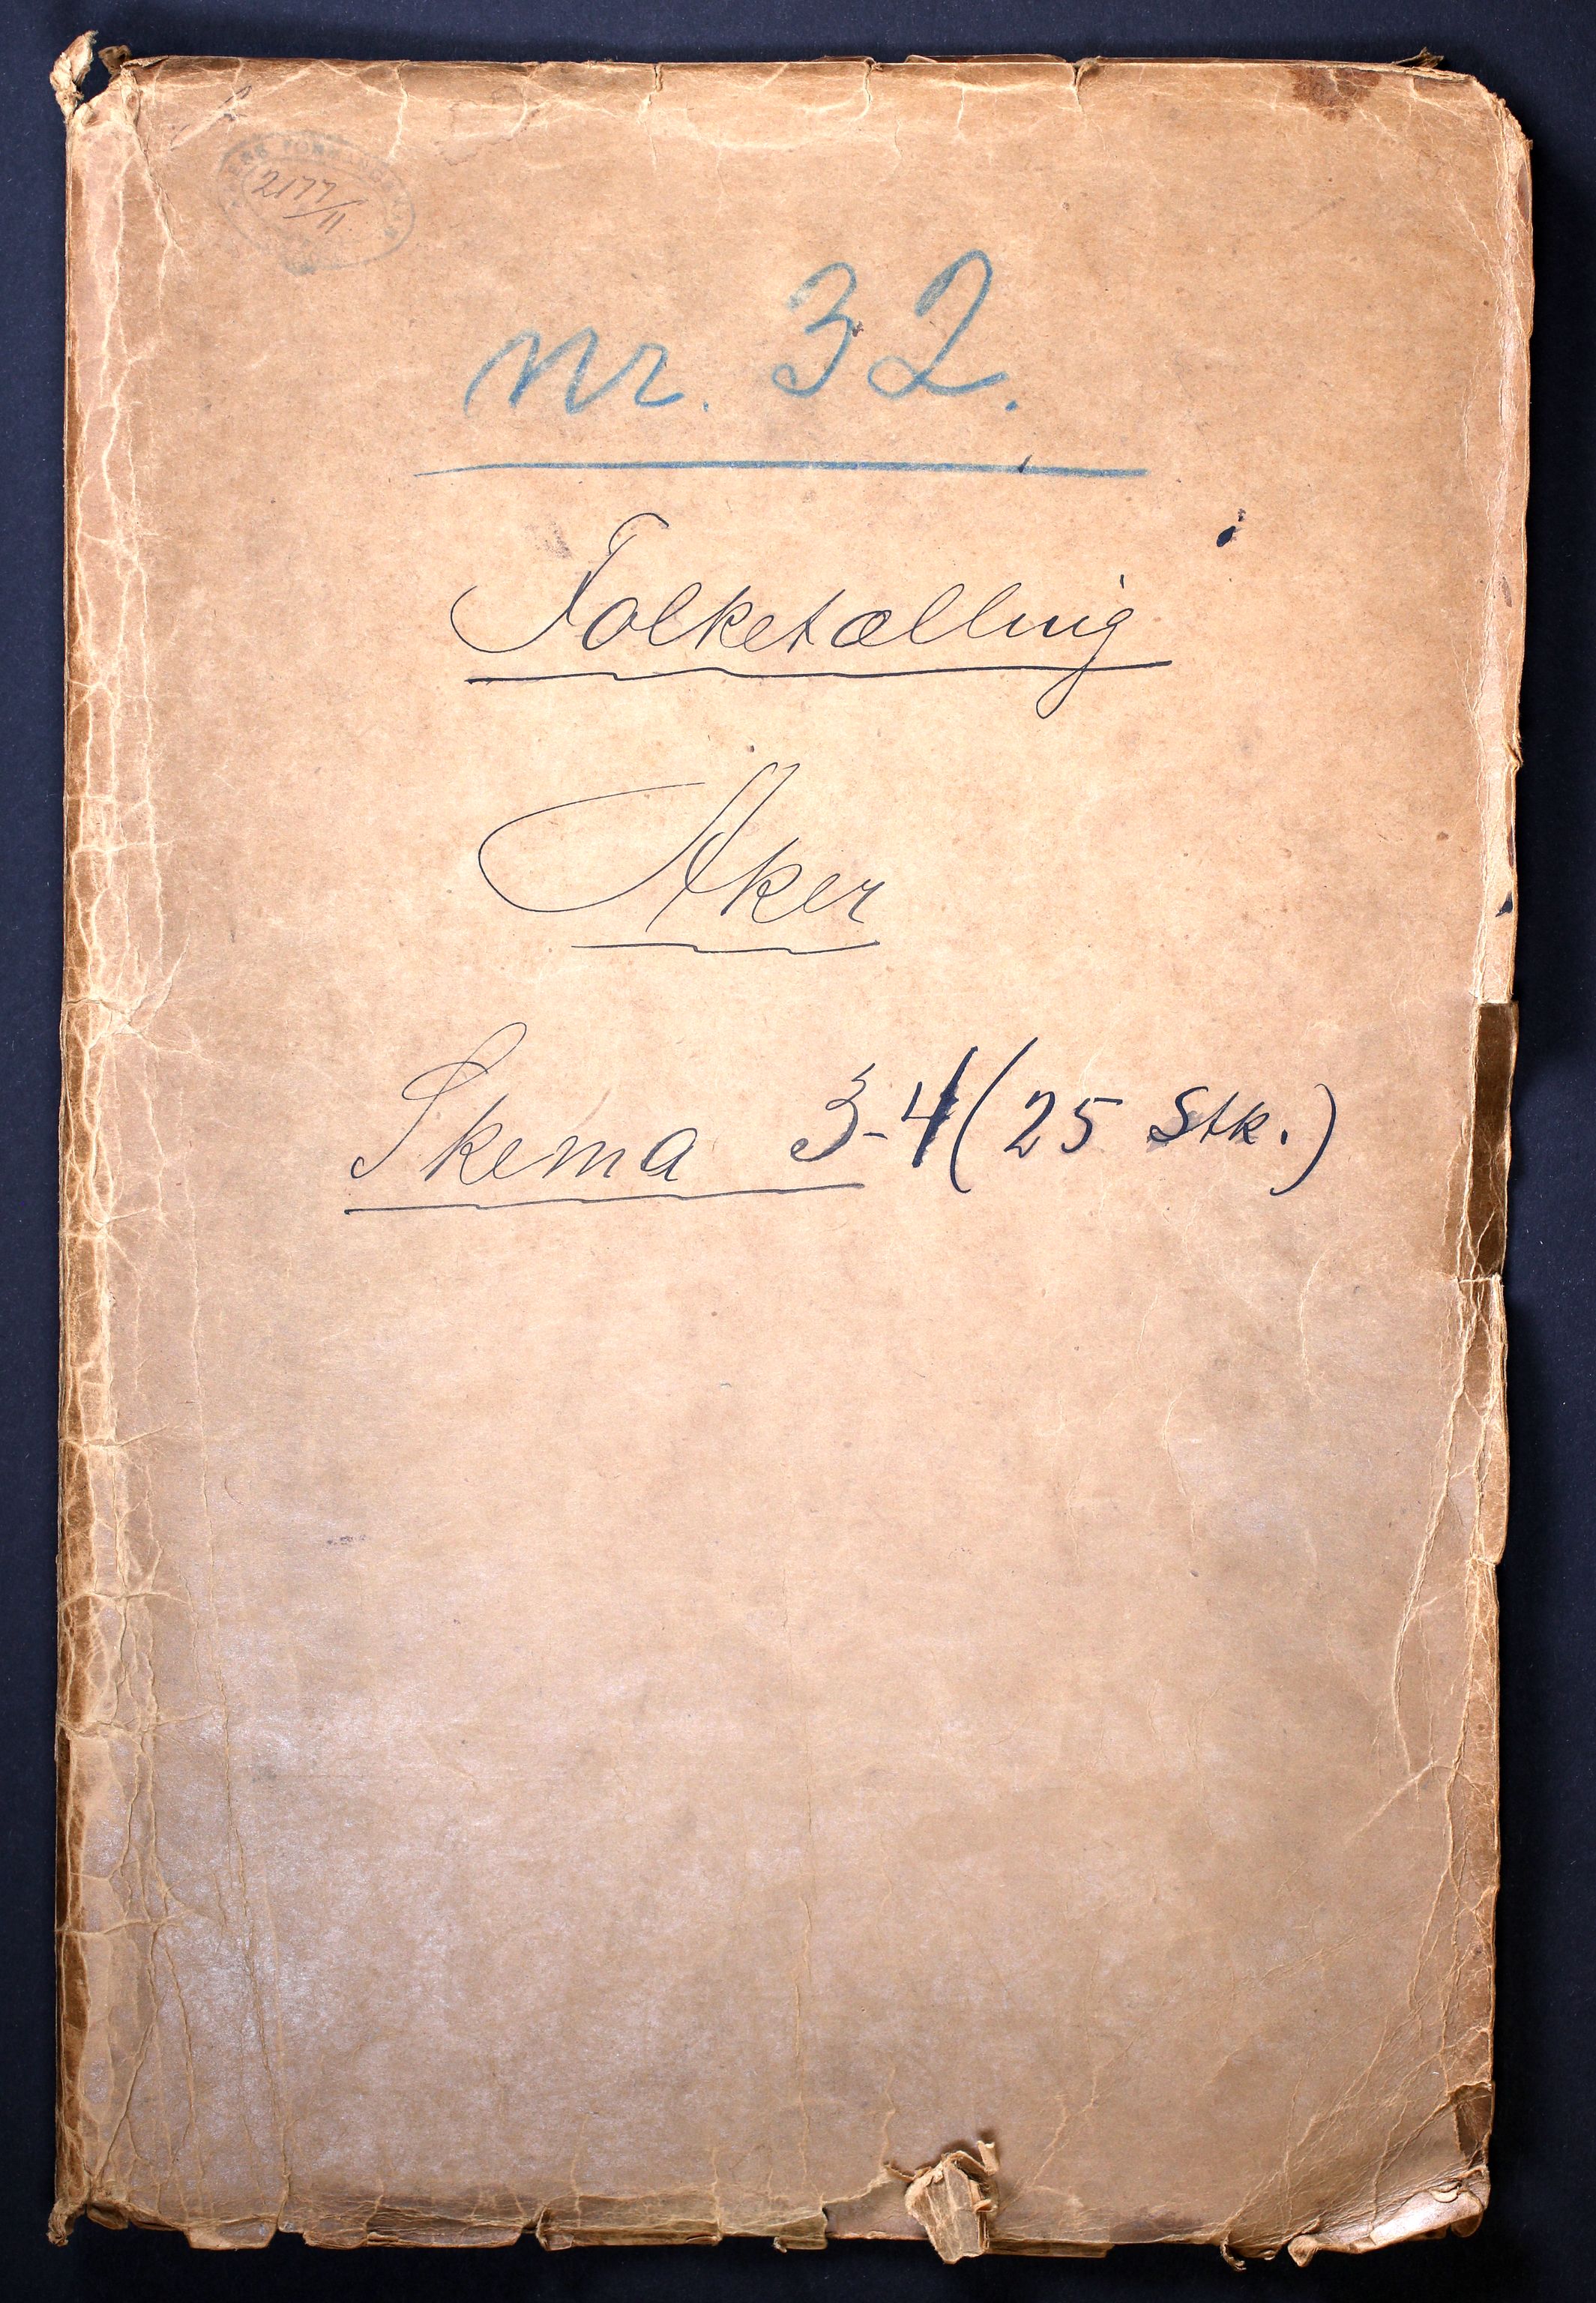 2177/11
nr. 32.
Folketælling i
Aker
Skema 3-4 (25 Stk.)